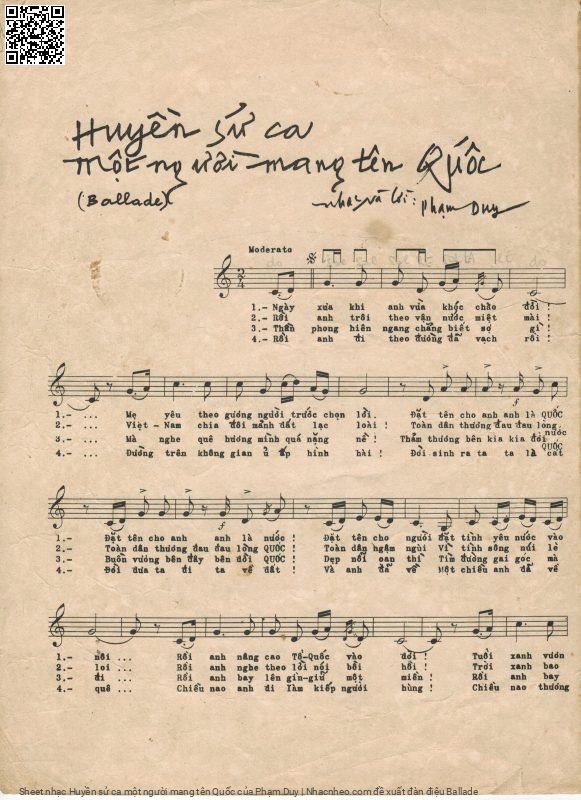 Huyền sử ca
một người mang tên Quốc
(Ballade)
nhạc và lời: Phạm Duy
Moderato
1.- Ngày xưa khi anh vừa khóc chào đời !
2.- Rồi anh trôi theo vận nước miệt mài !
3.- Thần phong hiên ngang chẳng biết sợ gì !
4.- Rồi anh đi theo đường đã vạch rồi !
1.- ... Mẹ yêu theo gương người trước chọn lời. Đặt tên cho anh anh là QUỐC
2.- ... Việt-Nam chia đôi mảnh đất lạc loài ! Toàn dân thương đau đau lòng
nước
3.- ... Mà nghe quê hương mình quá nặng nề ! Thảm thương bên kia kia đời
QUỐC
4.- ... Đường trên không gian ủ ấp hình hài ! Đời sinh ra ta ta là cát
1.- Đặt tên cho anh anh là nước ! Đặt tên cho người đặt tình yêu nước vào
2.- Toàn dân thương đau đau lòng QUỐC ! Toàn dân ngậm ngùi Vì tình sông núi lẻ
3.- Buồn vương bên đây bên đồi QUỐC ! Dẹp nỗi oan thì Tìm đường gai góc mà
4.- Đời đưa ta đi ta về đất ! Và anh đã về Một chiều anh đã về
1.- nôi ... Rồi anh nâng cao Tổ-Quốc vào đời ! Tuổi xanh vươn
2.- loi ... Rồi anh nghe theo lời nói bồi hồi ! Trời xanh bao
3.- đi ... Rồi anh bay lên gìn-giữ một miền ! Rồi anh bay
4.- quê ... Chiều nao anh đi làm kiếp người hùng ! Chiều nao thương
Sheet nhạc Huyền sử ca một người mang tên Quốc của Phạm Duy | Nhacnheo.com đề xuất đàn điệu Ballade